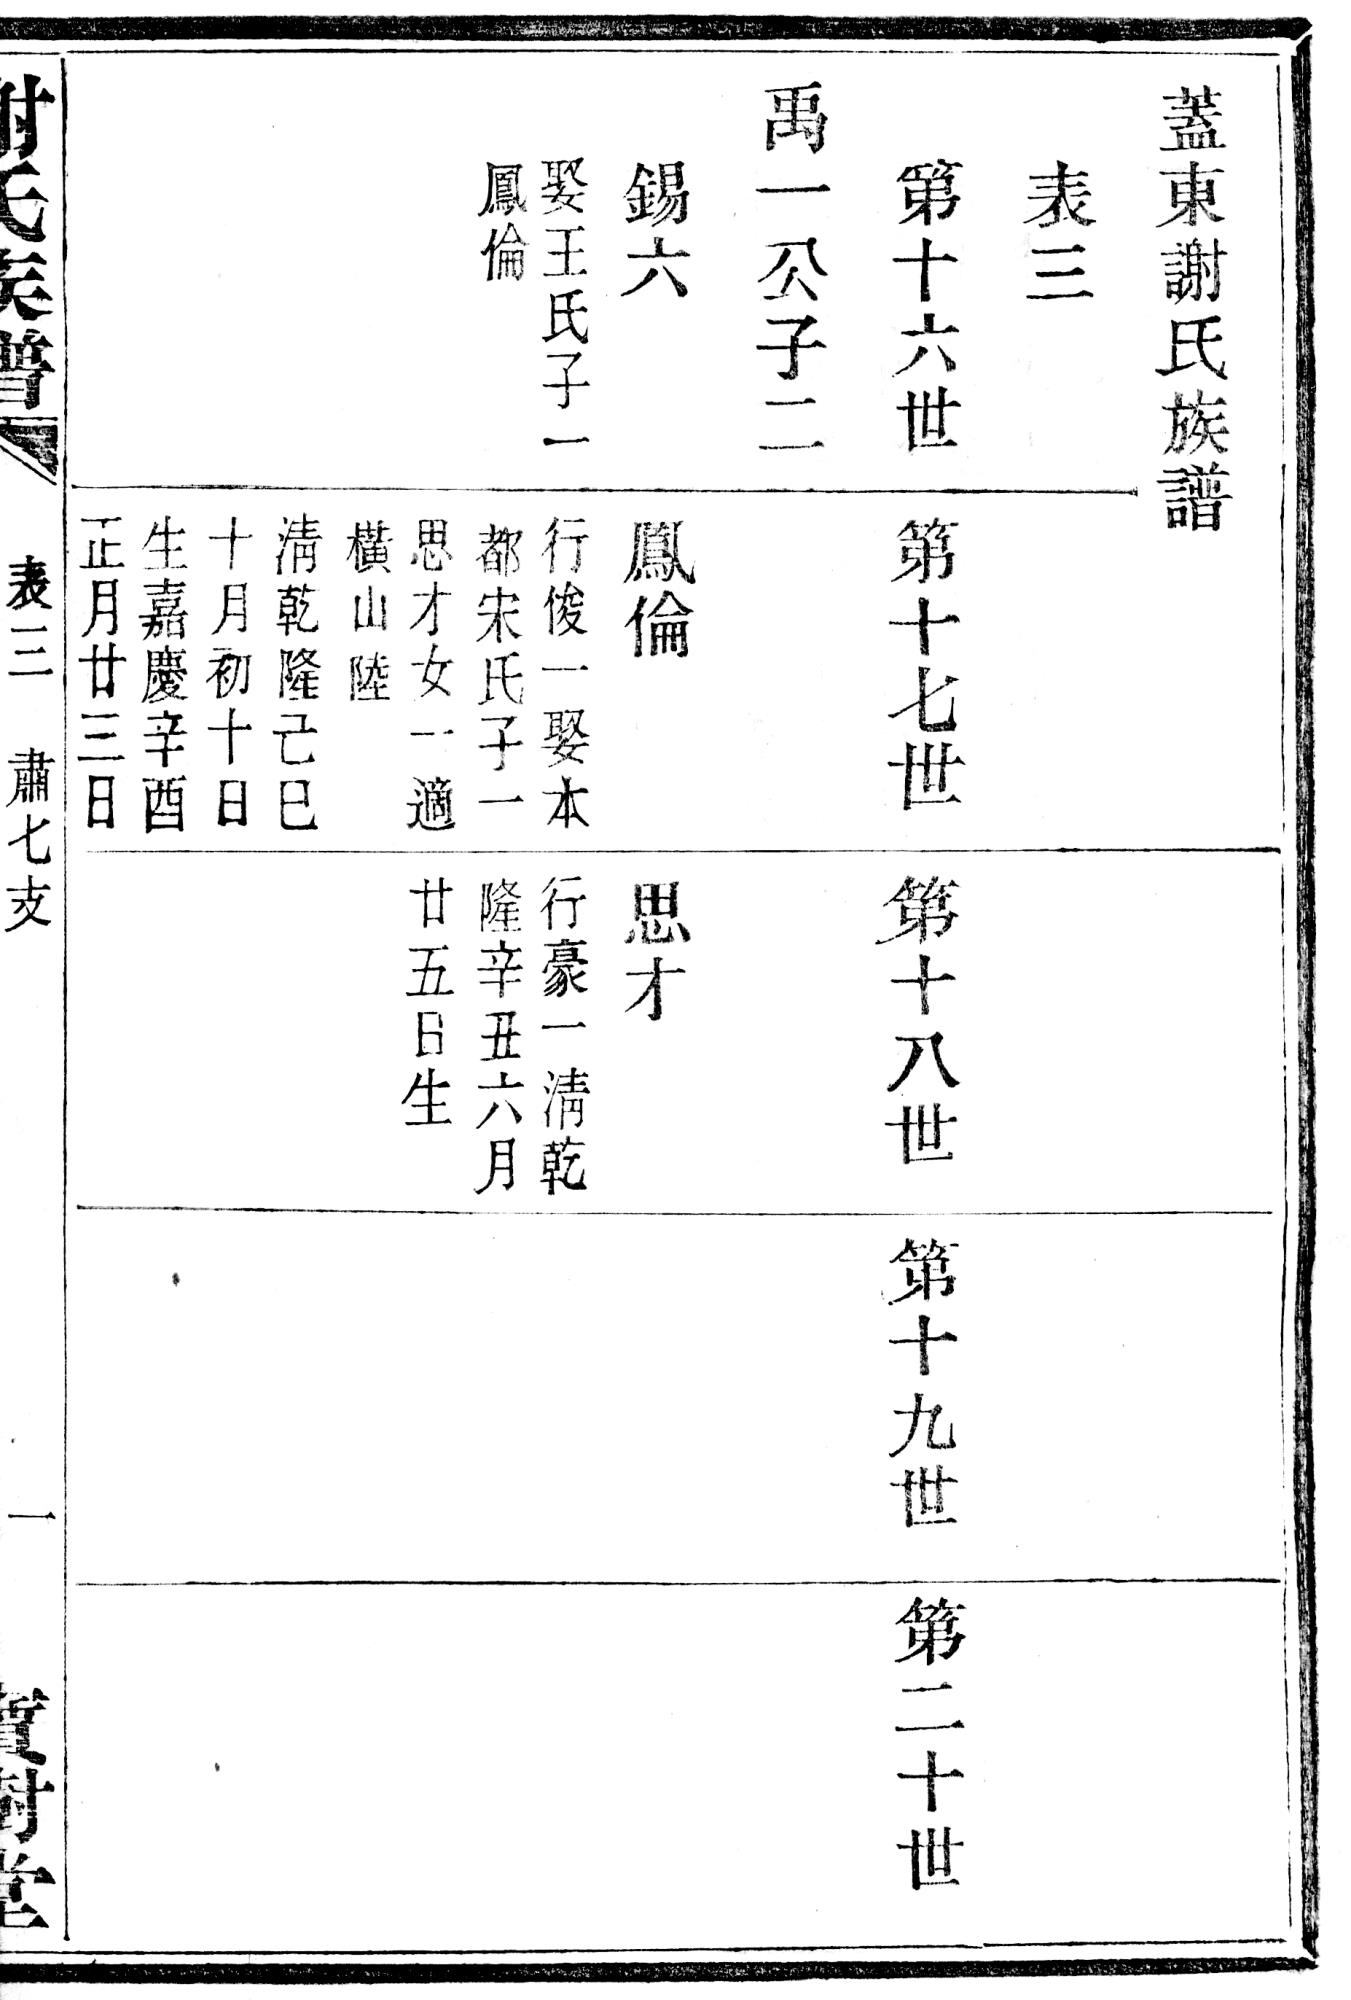 蓋東謝氏族譜
表三
第十六世
禹一公子二
錫六
娶王氏子一
鳳倫
第十七世
鳳倫
行俊一娶本
都宋氏子一
思才女一適
橫山陸
淸乾隆己巳
十月初十日
生嘉慶辛酉
正月廿三日
第十八世
思才
行豪一淸乾
隆辛丑六月
廿五日生
第十九世
第二十世
謝氏族譜
表三
肅七支
一
寶樹堂